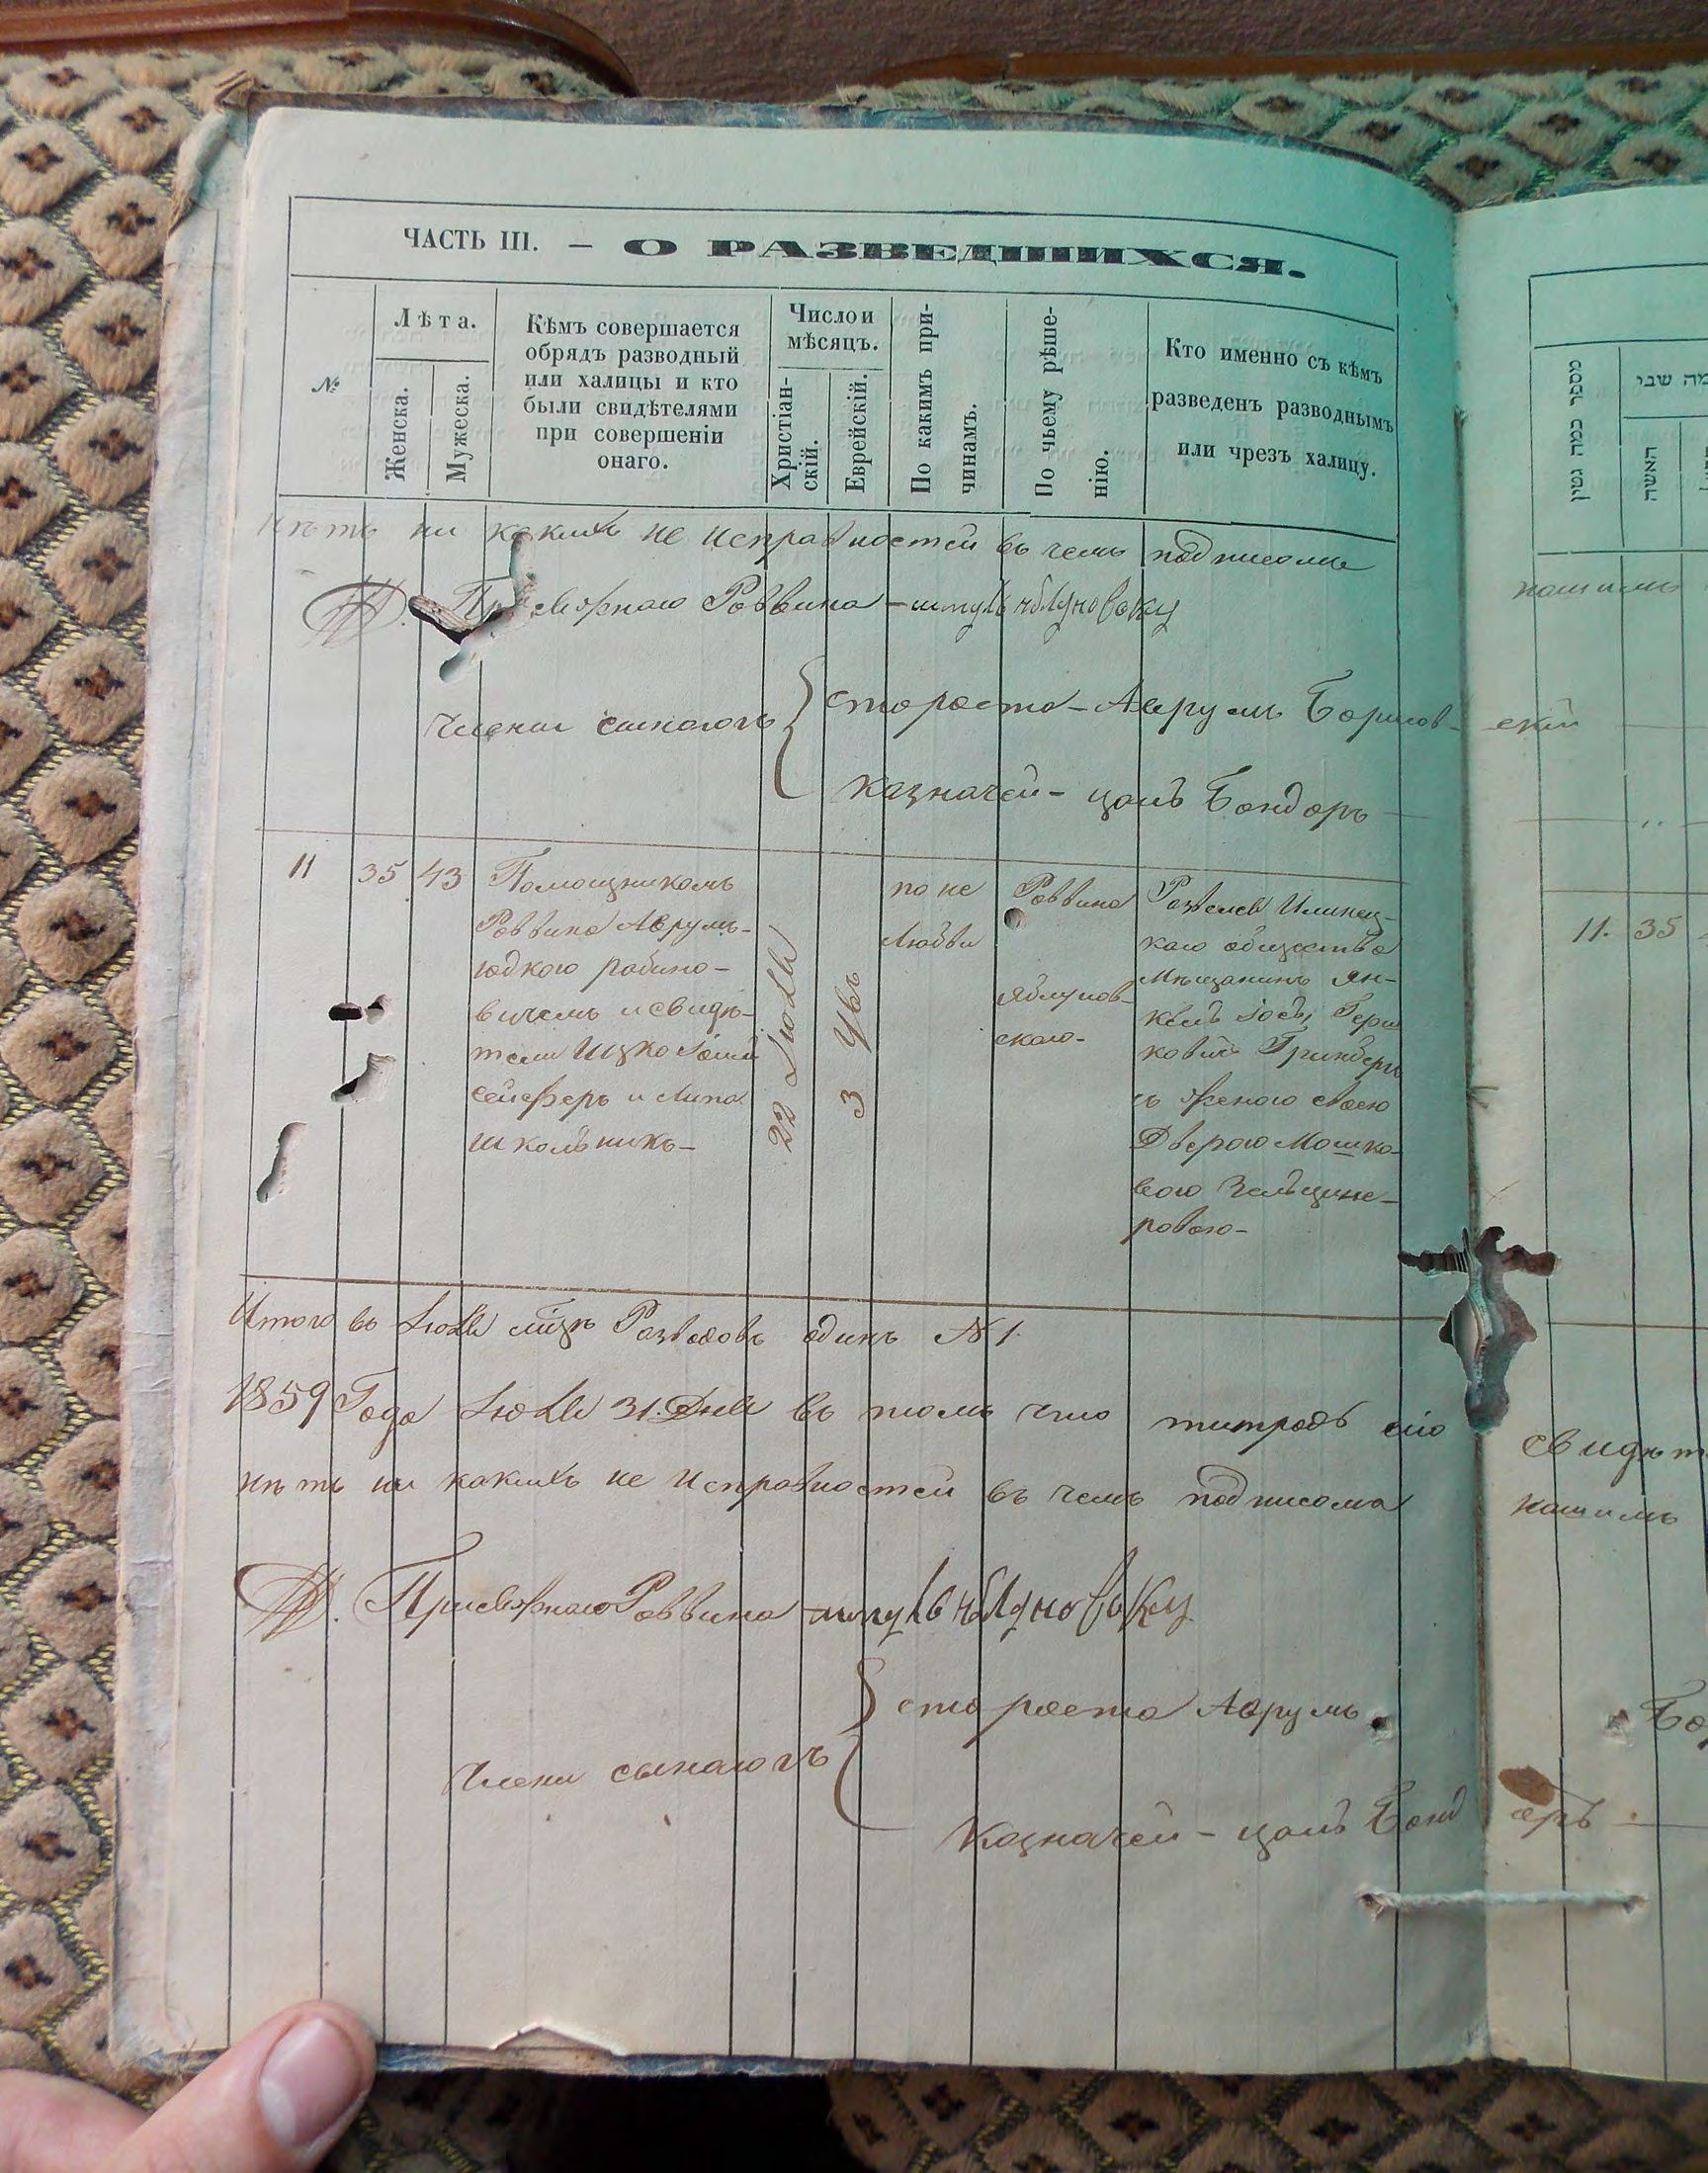 ЧАСТЬ III. — О РАЗВЕДШИХСЯ.
№
Лѣта.
Женска.
Мужеска.
Кѣмъ совершается
обрядъ разводный
или халицы и кто
были свидѣтелями
при совершеніи
онаго.
Число и
мѣсяцъ.
Христіан-
скій.
Еврейскій.
По какимъ при-
чинамъ.
По чьему рѣше-
нію.
Кто именно съ кѣмъ
разведенъ разводнымъ
или чрезъ халицу.
нѣтъ ни какихъ не исправностей въ чемъ подписомъ
Присяжнаго Раввина – шмуль яблуновски
члени синагогъ
староста – Аврумъ Борщов-
казначей – цаль Бондаръ
11
35
43
Помощникомъ
Раввина Аврумъ-
юдкою рабино-
вичемъ и свидѣ-
тели Ицко
и Липа
школьникъ –
22 Іюля
3
по не
любви
Раввина
Яблунов-
скаго –
Развелся Илинец-
каго общества
мѣщанинъ Ян-
кель Іось Герш
ковичъ Гринберг
съ женою своею
Дверою Мошко-
вою
ровою –
Итого въ Іюлѣ мцѣ Разводовъ одинъ № 1.
1859 Года Іюля 31. Дня въ томъ что титрадѣ сію
нѣтъ ни какихъ не исправностей въ чемъ подписома
Присяжнаго Раввина – шмуль яблуновски
члени сынагогъ
староста Аврумъ
казначей – цаль Бонд
מספר כמה גטין
האשה
нашимъ
скій
11. 35
свидѣт
нашимъ
Бо
аръ